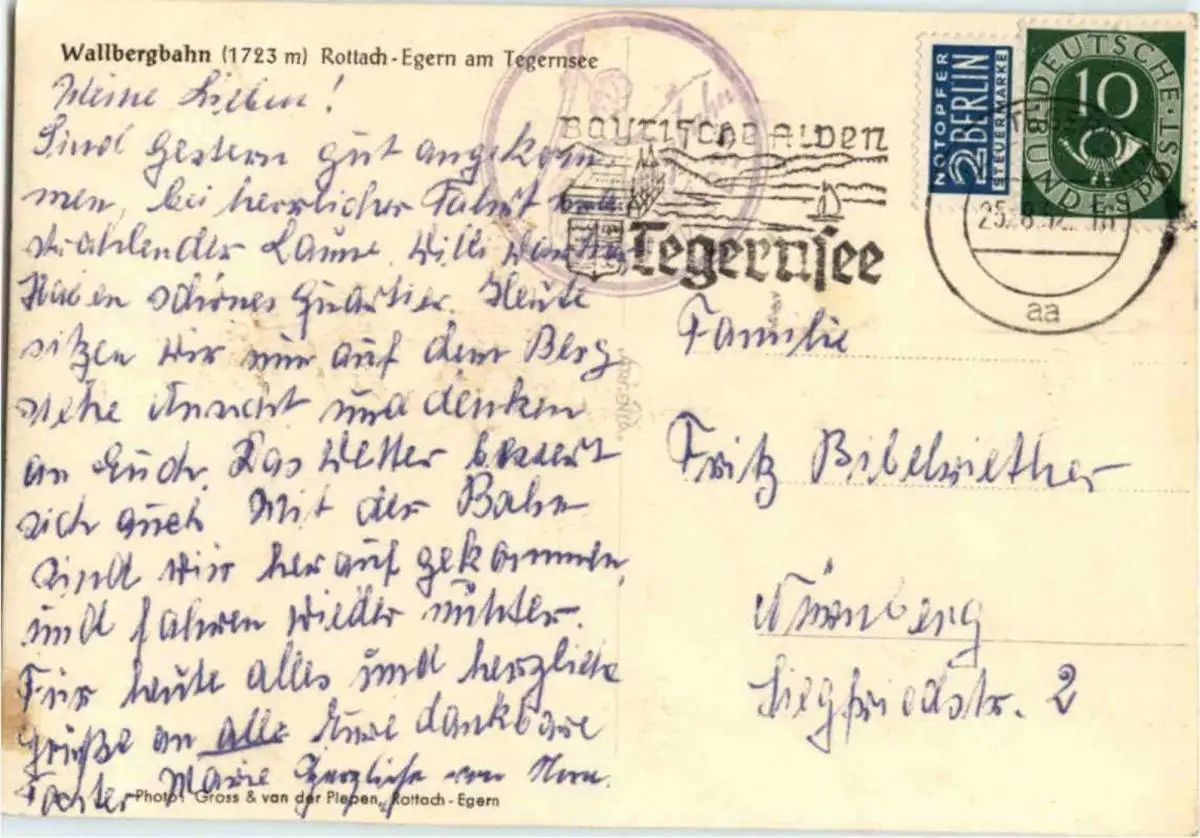 Wallbergbahn (1723 m) Rottach-Egern am Tegernsee
Meine Lieben!
Sind gestern gut angekom-
men, bei herrlicher Fahrt
strahlender Laune
Haben schönes Quartier. Heute
sitzen wir nun auf dem Berg
siehe Ansicht und denken
an Euch. Das Wetter bessert
sich auch. Mit der Bahn
sind wir herauf gekommen,
und fahren wieder runter.
Für heute alles und herzliche
Grüße an alle Eure dankbare
Tochter Marie Herzliche von
Photo: Gross & van der Piepen, Rottach-Egern
Bayrische Alpen
Tegernsee
NOTOPFER
2 BERLIN
STEUERMARKE
DEUTSCHE
BUNDESPOST
10
25.8.5
aa
Familie
Fritz Bibelriether
Nürnberg
Siegfriedstr. 2